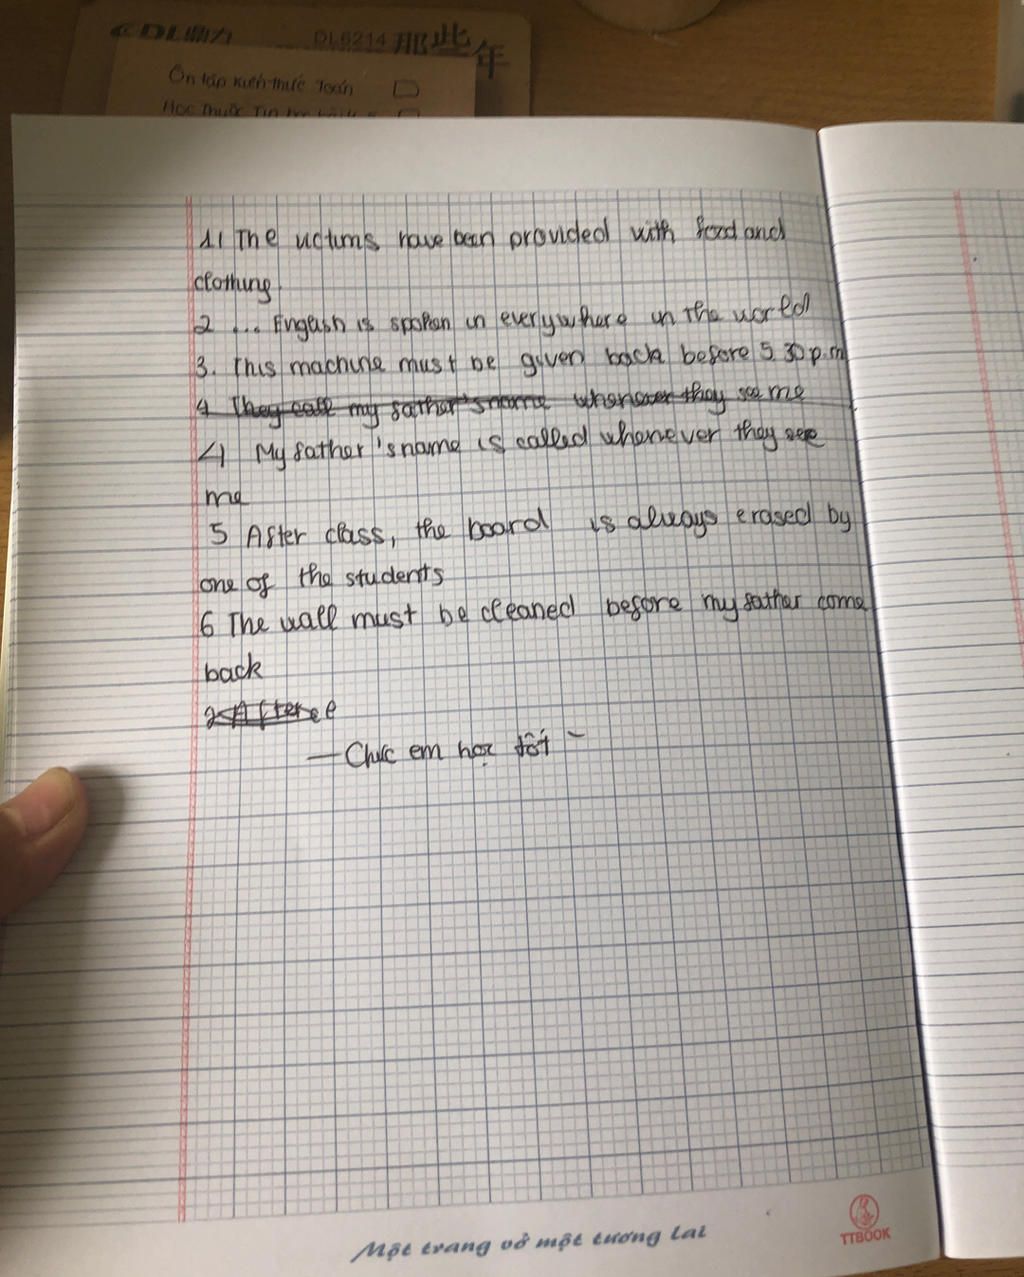 DL鼎力 DL6214 那些年
Ôn tập kiến thức Toán
Học thuộc Tin
1 The victims have been provided with food and
clothing
2 ... English is spoken in everywhere in the world
3. This machine must be given back before 5 30 p.m
4 They call my father's name whenever they see me
4 My father's name is called whenever they see
me
5 After class, the board is always erased by
one of the students
6 The wall must be cleaned before my father come
back
2 After e
— Chúc em học tốt ~
Một trang vở một tương lai
TTBOOK